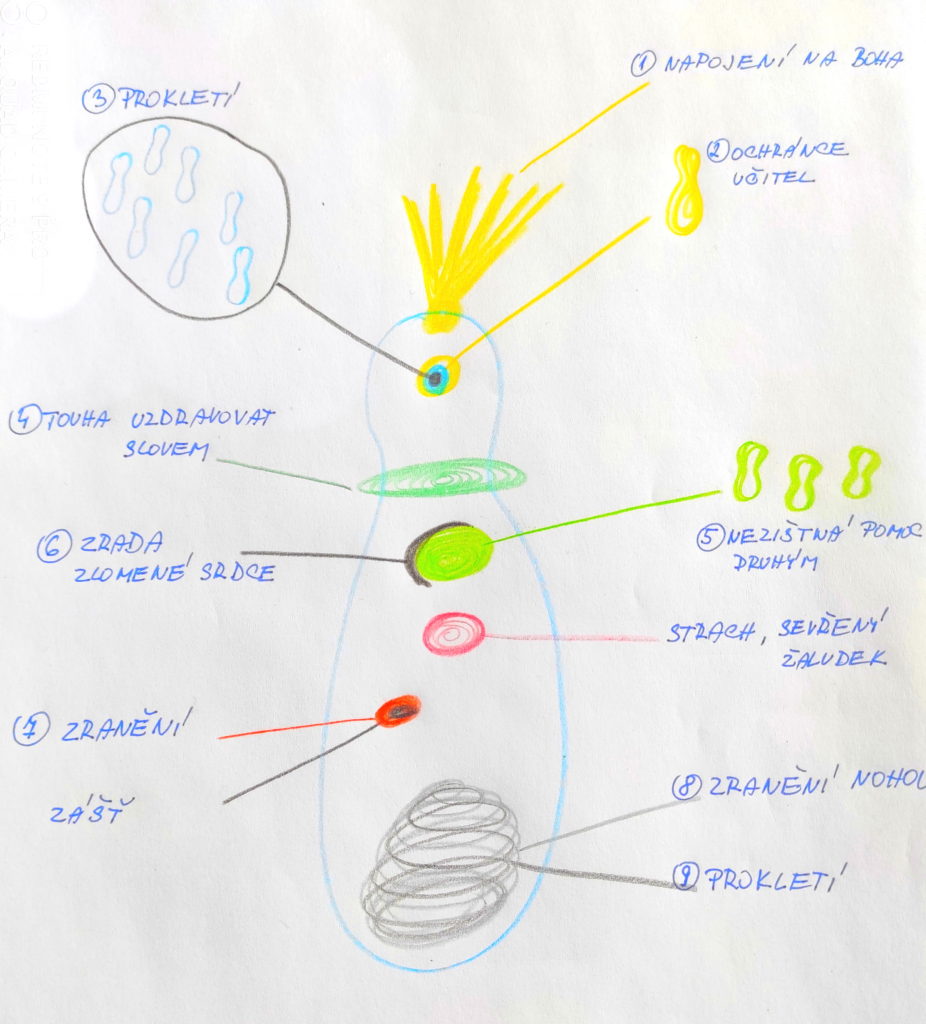 ① NAPOJENÍ NA BOHA
③ PROKLETÍ
② OCHRÁNCE
UČITEL
④ TOUHA UZDRAVOVAT
SLOVEM
⑤ NEZIŠTNÁ POMOC
DRUHÝM
⑥ ZRADA
ZLOMENÉ SRDCE
STRACH, SEVŘENÝ
ŽALUDEK
⑦ ZRANĚNÍ
ZÁŠŤ
⑧ ZRANĚNÍ NOHOU
⑨ PROKLETÍ